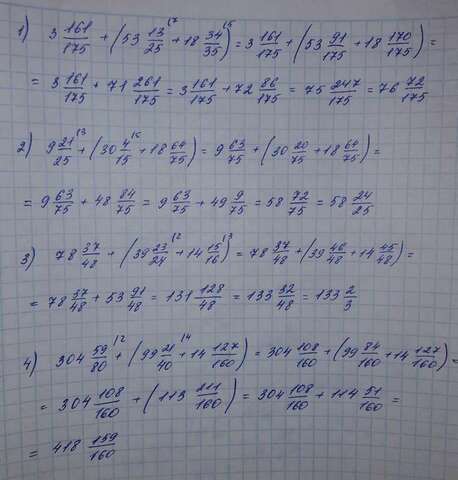 1) 3 161/175 + (53 13/25 + 18 34/35) = 3 161/175 + (53 91/175 + 18 170/175) =
= 3 161/175 + 71 261/175 = 3 161/175 + 72 86/175 = 75 247/175 = 76 72/175
2) 9 21/25 + (30 4/15 + 18 64/75) = 9 63/75 + (30 20/75 + 18 64/75) =
= 9 63/75 + 48 84/75 = 9 63/75 + 49 9/75 = 58 72/75 = 58 24/25
3) 78 37/48 + (39 23/24 + 14 15/16) = 78 37/48 + (39 46/48 + 14 45/48) =
= 78 37/48 + 53 91/48 = 131 128/48 = 133 32/48 = 133 2/3
4) 304 59/80 + (99 21/40 + 14 127/160) = 304 108/160 + (99 84/160 + 14 127/160) =
= 304 108/160 + (113 111/160) = 304 108/160 + 114 51/160 =
= 418 159/160